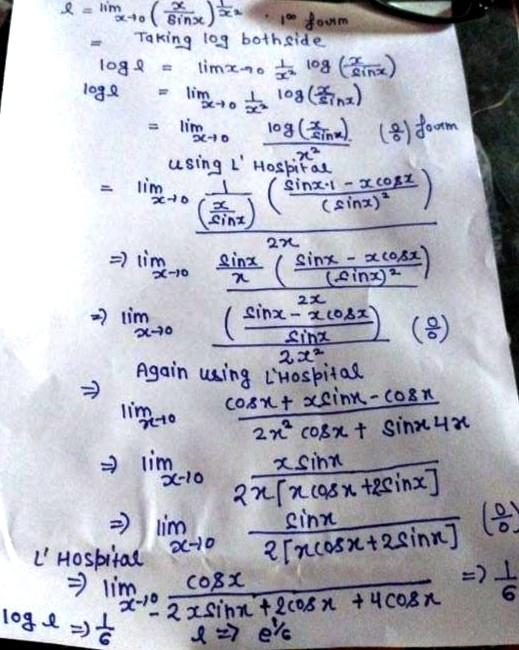 l = lim x→0 (x/sinx)^(1/x²) . 1^∞ form
= Taking log bothside
log l = lim x→0 1/x² log (x/sinx)
log l = lim x→0 1/x² log (x/sinx)
= lim x→0 log(x/sinx)/x² (0/0) form
using L' Hospital
= lim x→0 (1/(x/sinx) ((sinx·1 - x cosx)/(sinx)²))/2x
=> lim x→0 (sinx/x ((sinx - x cosx)/(sinx)²))/2x
=> lim x→0 ((sinx - x cosx)/sinx)/2x² (0/0)
Again using L'Hospital
=> lim x→0 (cosx + x sinx - cosx)/(2x² cosx + sinx 4x)
=> lim x→0 x sinx/2x[x cosx + 2sinx]
=> lim x→0 sinx/2[x cosx + 2sinx] (0/0)
L' Hospital
=> lim x→0 cosx/(-2x sinx + 2cosx + 4cosx) => 1/6
log l => 1/6 l => e^(1/6)